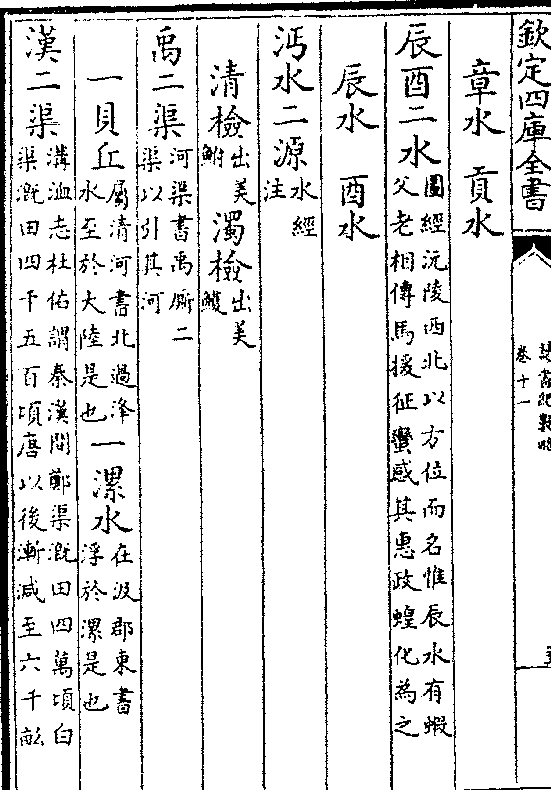 欽定四庫全書
卷十一
章水 貢水
辰酉二水 圖經沅陵西北以方位而名惟辰水有蝦
父老相傳馬援征蠻感其惠政蝗化為之
辰水 酉水
沔水二源 水經
注
清檢 出美
鮒 濁檢 出美
鱯
禹二渠 河渠書禹廝二
渠以引其河
一貝丘 屬清河書北過洚
水至於大陸是也 一漯水 在汲郡東書
浮於漯是也
漢二渠 溝洫志杜佑謂秦漢間鄭渠溉田四萬頃白
渠溉田四千五百頃唐以後漸減至六千畝